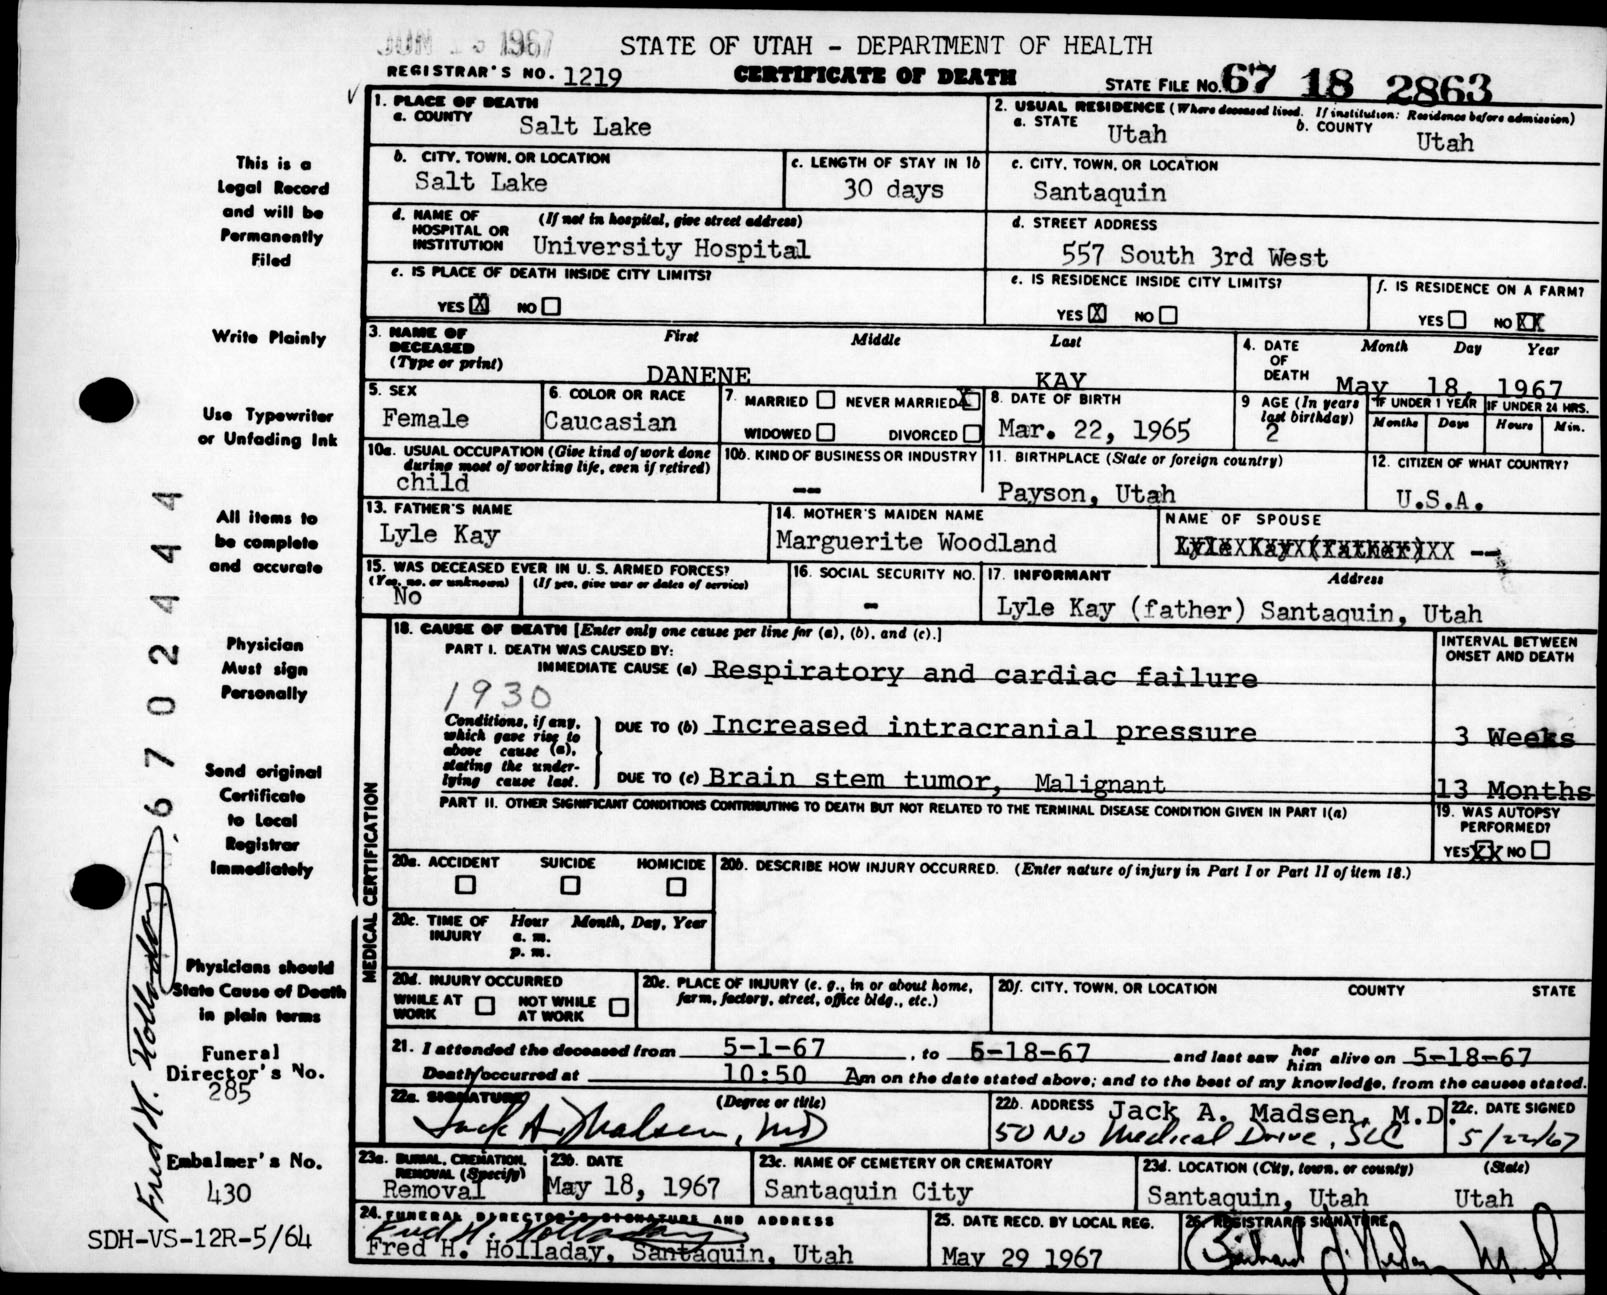 JUN 1967
STATE OF UTAH - DEPARTMENT OF HEALTH
REGISTRAR'S NO. 1219
CERTIFICATE OF DEATH
STATE FILE NO. 67 18 2863
1. PLACE OF DEATH
a. COUNTY Salt Lake
2. USUAL RESIDENCE (Where deceased lived. If institution: Residence before admission)
a. STATE Utah b. COUNTY Utah
b. CITY, TOWN, OR LOCATION
Salt Lake
c. LENGTH OF STAY IN 1b
30 days
c. CITY, TOWN, OR LOCATION
Santaquin
d. NAME OF HOSPITAL OR INSTITUTION (If not in hospital, give street address)
University Hospital
d. STREET ADDRESS
557 South 3rd West
e. IS PLACE OF DEATH INSIDE CITY LIMITS?
YES X NO
e. IS RESIDENCE INSIDE CITY LIMITS?
YES X NO
f. IS RESIDENCE ON A FARM?
YES NO XX
3. NAME OF DECEASED (Type or print)
First Middle Last
DANENE KAY
4. DATE OF DEATH Month Day Year
May 18, 1967
5. SEX
Female
6. COLOR OR RACE
Caucasian
7. MARRIED NEVER MARRIED X
WIDOWED DIVORCED
8. DATE OF BIRTH
Mar. 22, 1965
9 AGE (In years last birthday)
2
IF UNDER 1 YEAR IF UNDER 24 HRS.
Months Days Hours Min.
10a. USUAL OCCUPATION (Give kind of work done during most of working life, even if retired)
child
10b. KIND OF BUSINESS OR INDUSTRY
--
11. BIRTHPLACE (State or foreign country)
Payson, Utah
12. CITIZEN OF WHAT COUNTRY?
U.S.A.
13. FATHER'S NAME
Lyle Kay
14. MOTHER'S MAIDEN NAME
Marguerite Woodland
NAME OF SPOUSE
--
15. WAS DECEASED EVER IN U. S. ARMED FORCES?
(Yes, no, or unknown) (If yes, give war or dates of service)
No
16. SOCIAL SECURITY NO.
-
17. INFORMANT Address
Lyle Kay (father) Santaquin, Utah
MEDICAL CERTIFICATION
18. CAUSE OF DEATH [Enter only one cause per line for (a), (b), and (c).]
INTERVAL BETWEEN ONSET AND DEATH
PART I. DEATH WAS CAUSED BY:
IMMEDIATE CAUSE (a) Respiratory and cardiac failure
1930
Conditions, if any, which gave rise to above cause (a), stating the underlying cause last.
DUE TO (b) Increased intracranial pressure 3 Weeks
DUE TO (c) Brain stem tumor, Malignant 13 Months
PART II. OTHER SIGNIFICANT CONDITIONS CONTRIBUTING TO DEATH BUT NOT RELATED TO THE TERMINAL DISEASE CONDITION GIVEN IN PART I(a)
19. WAS AUTOPSY PERFORMED?
YES XX NO
20a. ACCIDENT SUICIDE HOMICIDE
20b. DESCRIBE HOW INJURY OCCURRED. (Enter nature of injury in Part I or Part II of item 18.)
20c. TIME OF INJURY Hour Month, Day, Year
a. m.
p. m.
20d. INJURY OCCURRED
WHILE AT WORK NOT WHILE AT WORK
20e. PLACE OF INJURY (e. g., in or about home, farm, factory, street, office bldg., etc.)
20f. CITY, TOWN, OR LOCATION COUNTY STATE
21. I attended the deceased from 5-1-67, to 5-18-67 and last saw her him alive on 5-18-67
Death occurred at 10:50 Am on the date stated above; and to the best of my knowledge, from the causes stated.
22a. SIGNATURE (Degree or title)
Jack A. Madsen, MD
22b. ADDRESS Jack A. Madsen, M.D.
50 No Medical Drive, SLC
22c. DATE SIGNED
5/22/67
23a. BURIAL, CREMATION, REMOVAL (Specify)
Removal
23b. DATE
May 18, 1967
23c. NAME OF CEMETERY OR CREMATORY
Santaquin City
23d. LOCATION (City, town, or county) (State)
Santaquin, Utah Utah
24. FUNERAL DIRECTOR'S SIGNATURE AND ADDRESS
Fred H. Holladay
Fred H. Holladay, Santaquin, Utah
25. DATE RECD. BY LOCAL REG.
May 29 1967
26. REGISTRAR'S SIGNATURE
This is a
Legal Record
and will be
Permanently
Filed
Write Plainly
Use Typewriter
or Unfading Ink
All items to
be complete
and accurate
Physician
Must sign
Personally
Send original
Certificate
to Local
Registrar
Immediately
Physicians should
State Cause of Death
in plain terms
Funeral
Director's No.
285
Embalmer's No.
430
SDH-VS-12R-5/64
67024444
Fred H. Holladay